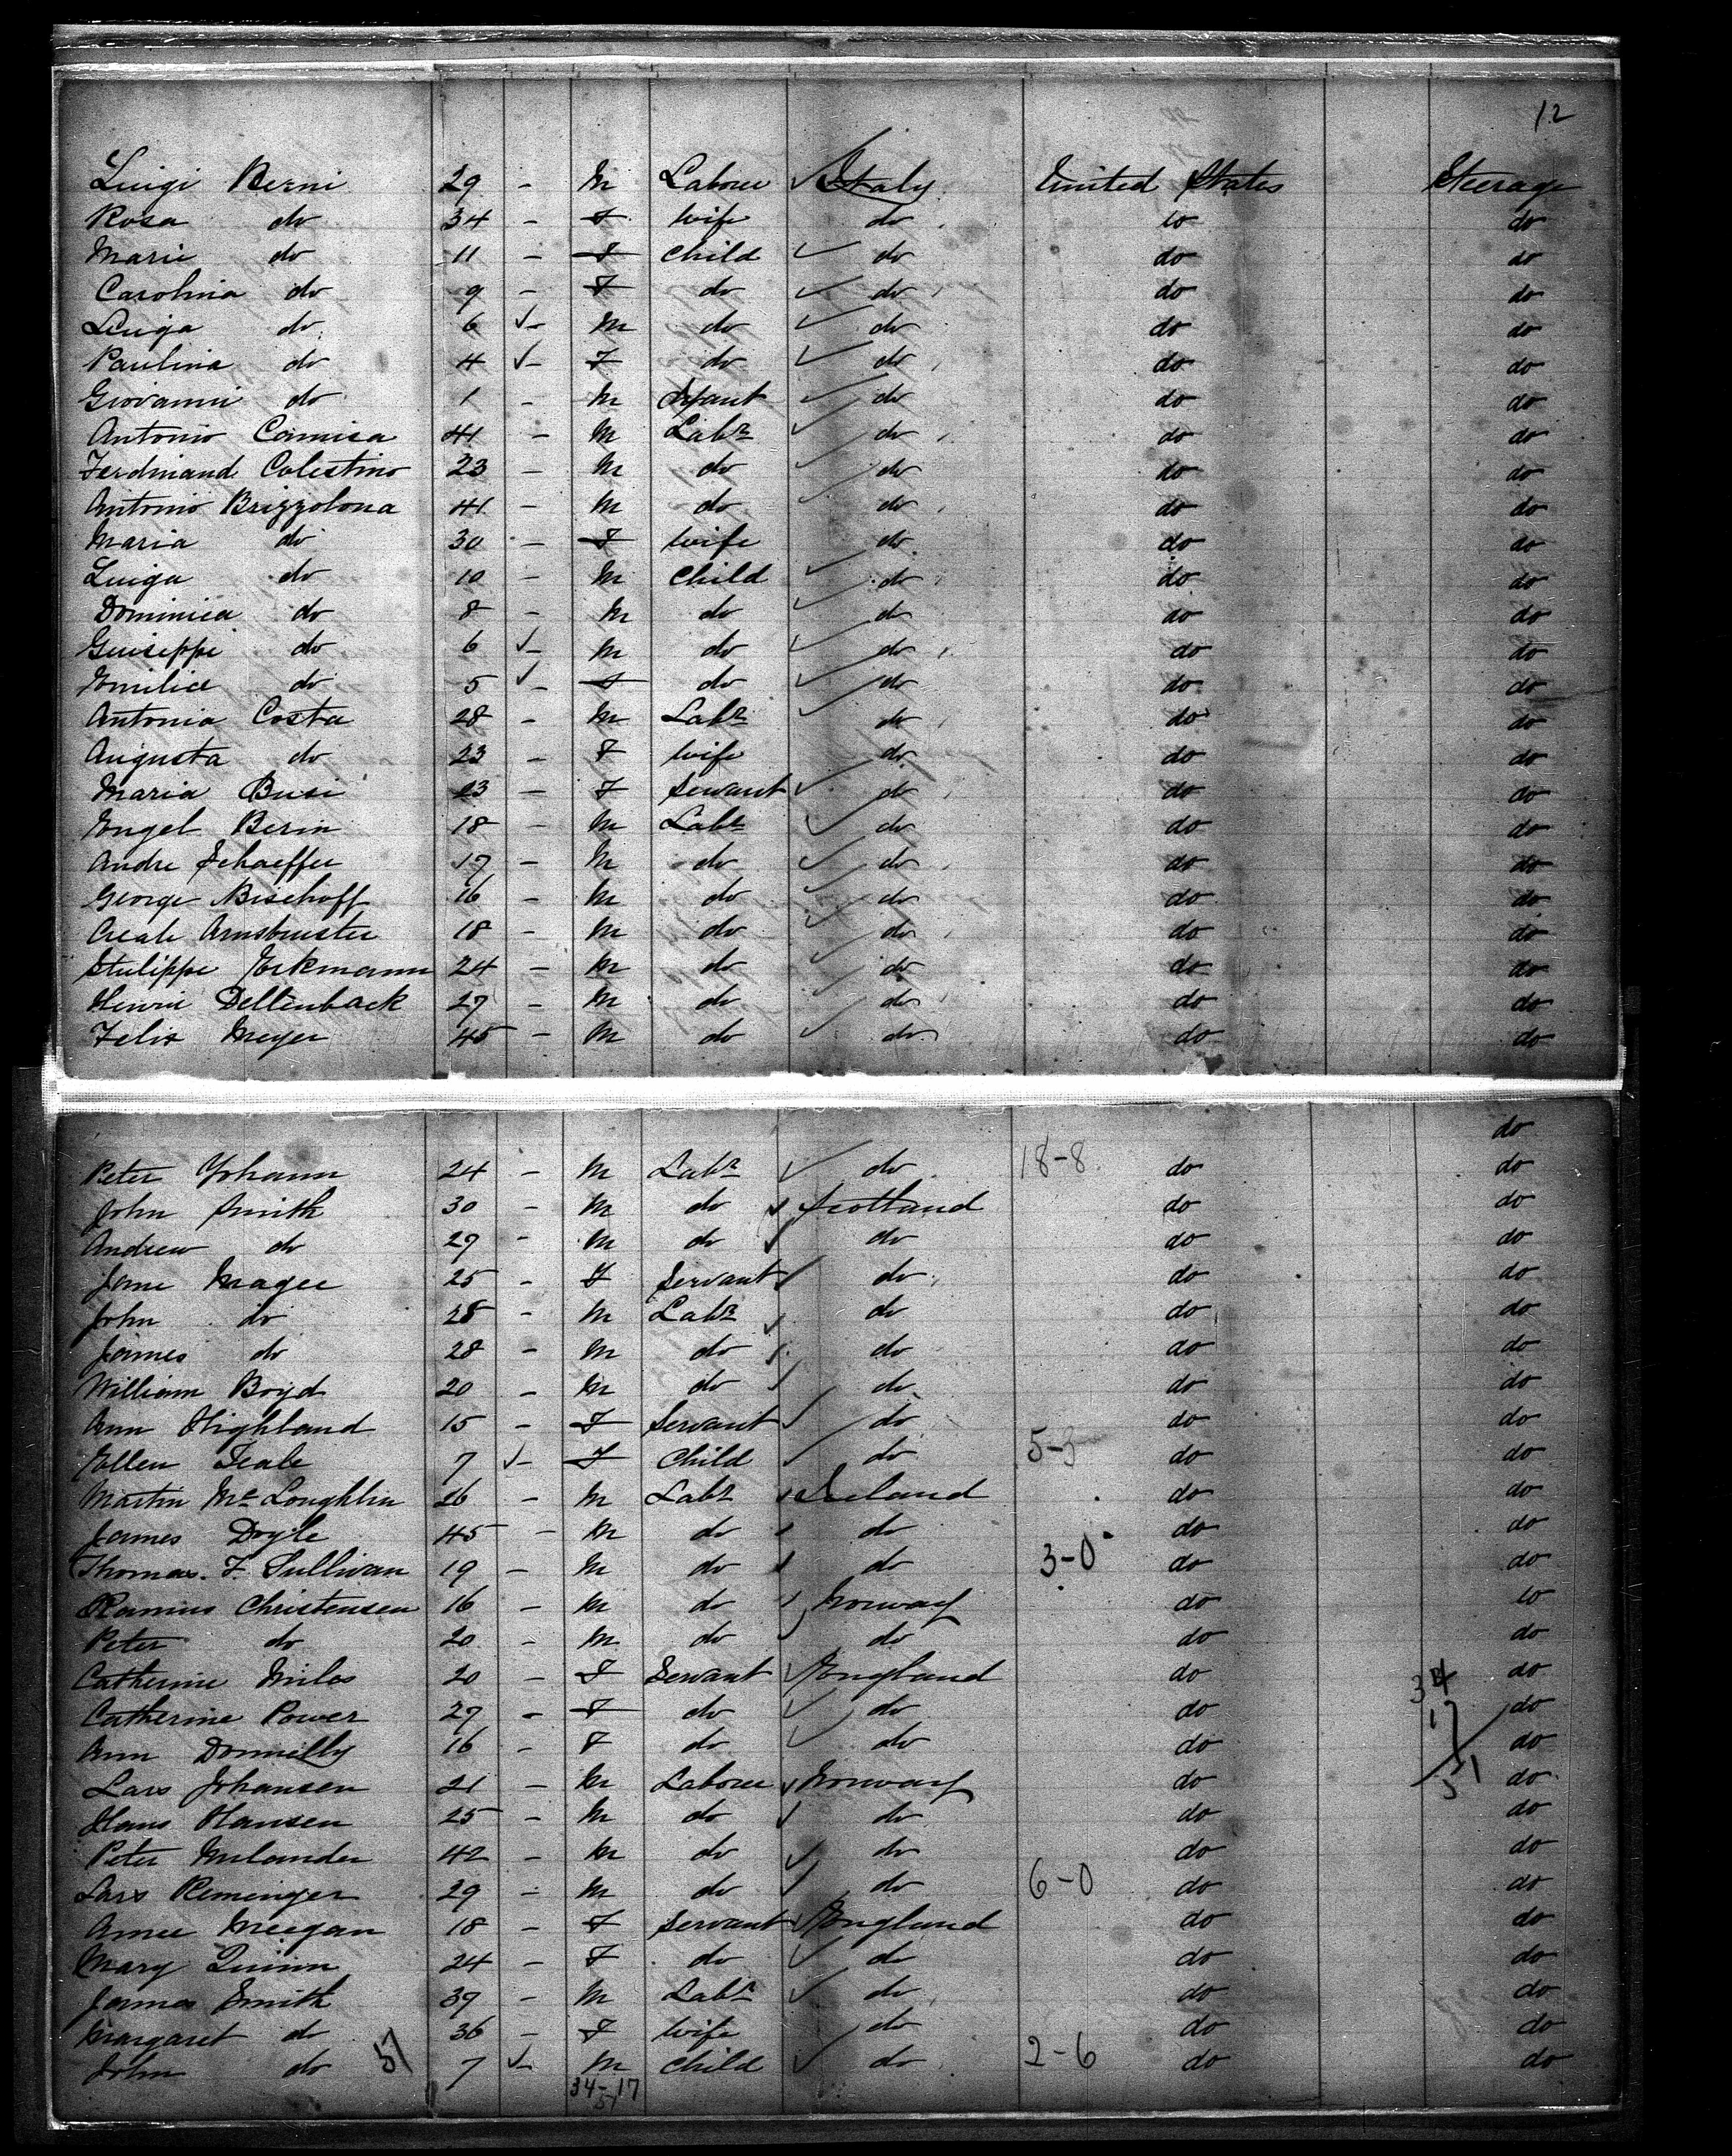 12
Luigi Berni 29 - M Laborer Italy United States Steerage
Rosa do 34 - F wife do do do
Marie do 11 - F Child do do do
Carolina do 9 - F do do do do
Luiga do 6 - M do do do do
Paulina do 4 - F do do do do
Giovanni do 1 - M Infant do do do
Antonio Camisa 41 - M Labr do do do
Ferdinand Colestino 23 - M do do do do
Antonio Brizzolona 41 - M do do do do
Maria do 30 - F wife do do do
Luiga do 10 - M Child do do do
Dominica do 8 - M do do do do
Guiseppi do 6 - M do do do do
Emilia do 5 - F do do do do
Antonia Costa 28 - M Labr do do do
Augusta do 23 - F wife do do do
Maria Busi 23 - F Servant do do do
Engel Berin 18 - M Labr do do do
Andre Schaeffer 17 - M do do do do
George Bischoff 16 - M do do do do
Armbruster 18 - M do do do do
Erkmann 24 - M do do do do
Henri Dellenback 27 - M do do do do
Felix Meyer 45 - M do do do do
do
Peter Johann 24 - M Labr do 18-8 do do
John Smith 30 - M do Scotland do do
Andrew do 29 - M do do do do
Jane Magee 25 - F Servant do do do
John do 28 - M Labr do do do
James do 28 - M do do do do
William Boyd 20 - M do do do do
Ann Highland 15 - F Servant do do do
Ellen Teale 7 - F Child do 5-3 do do
Martin Mc Loughlin 26 - M Labr Ireland do do
James Doyle 45 - M do do do do
Thomas. F. Sullivan 19 - M do do 3-0 do do
Ramus Christensen 16 - M do Norway do do
Peter do 20 - M do do do do
Catherine Miles 20 - F Servant England do 34 do
Catherine Power 27 - F do do do 17 do
Ann Donnelly 16 - F do do do do
Lars Johansen 21 - M Laborer Norway do 51 do
Hans Hansen 25 - M do do do do
Peter Milander 42 - M do do do do
Lars Reminger 29 - M do do 6-0 do do
Annie Meegan 18 - F Servant England do do
Mary Quinn 24 - F do do do do
James Smith 39 - M Labr do do do
Margaret do 36 - F wife do do do
John do 51 7 - M Child do 2-6 do do
34-17
51